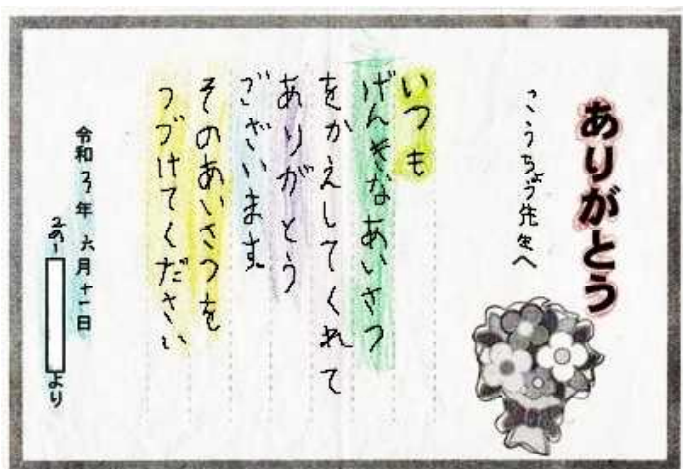 ありがとう
こうちょう先生へ
いつも
げんきなあいさつ
をかえしてくれて
ありがとう
ございます。
そのあいさつを
つづけてください
令和3年六月十一日
より